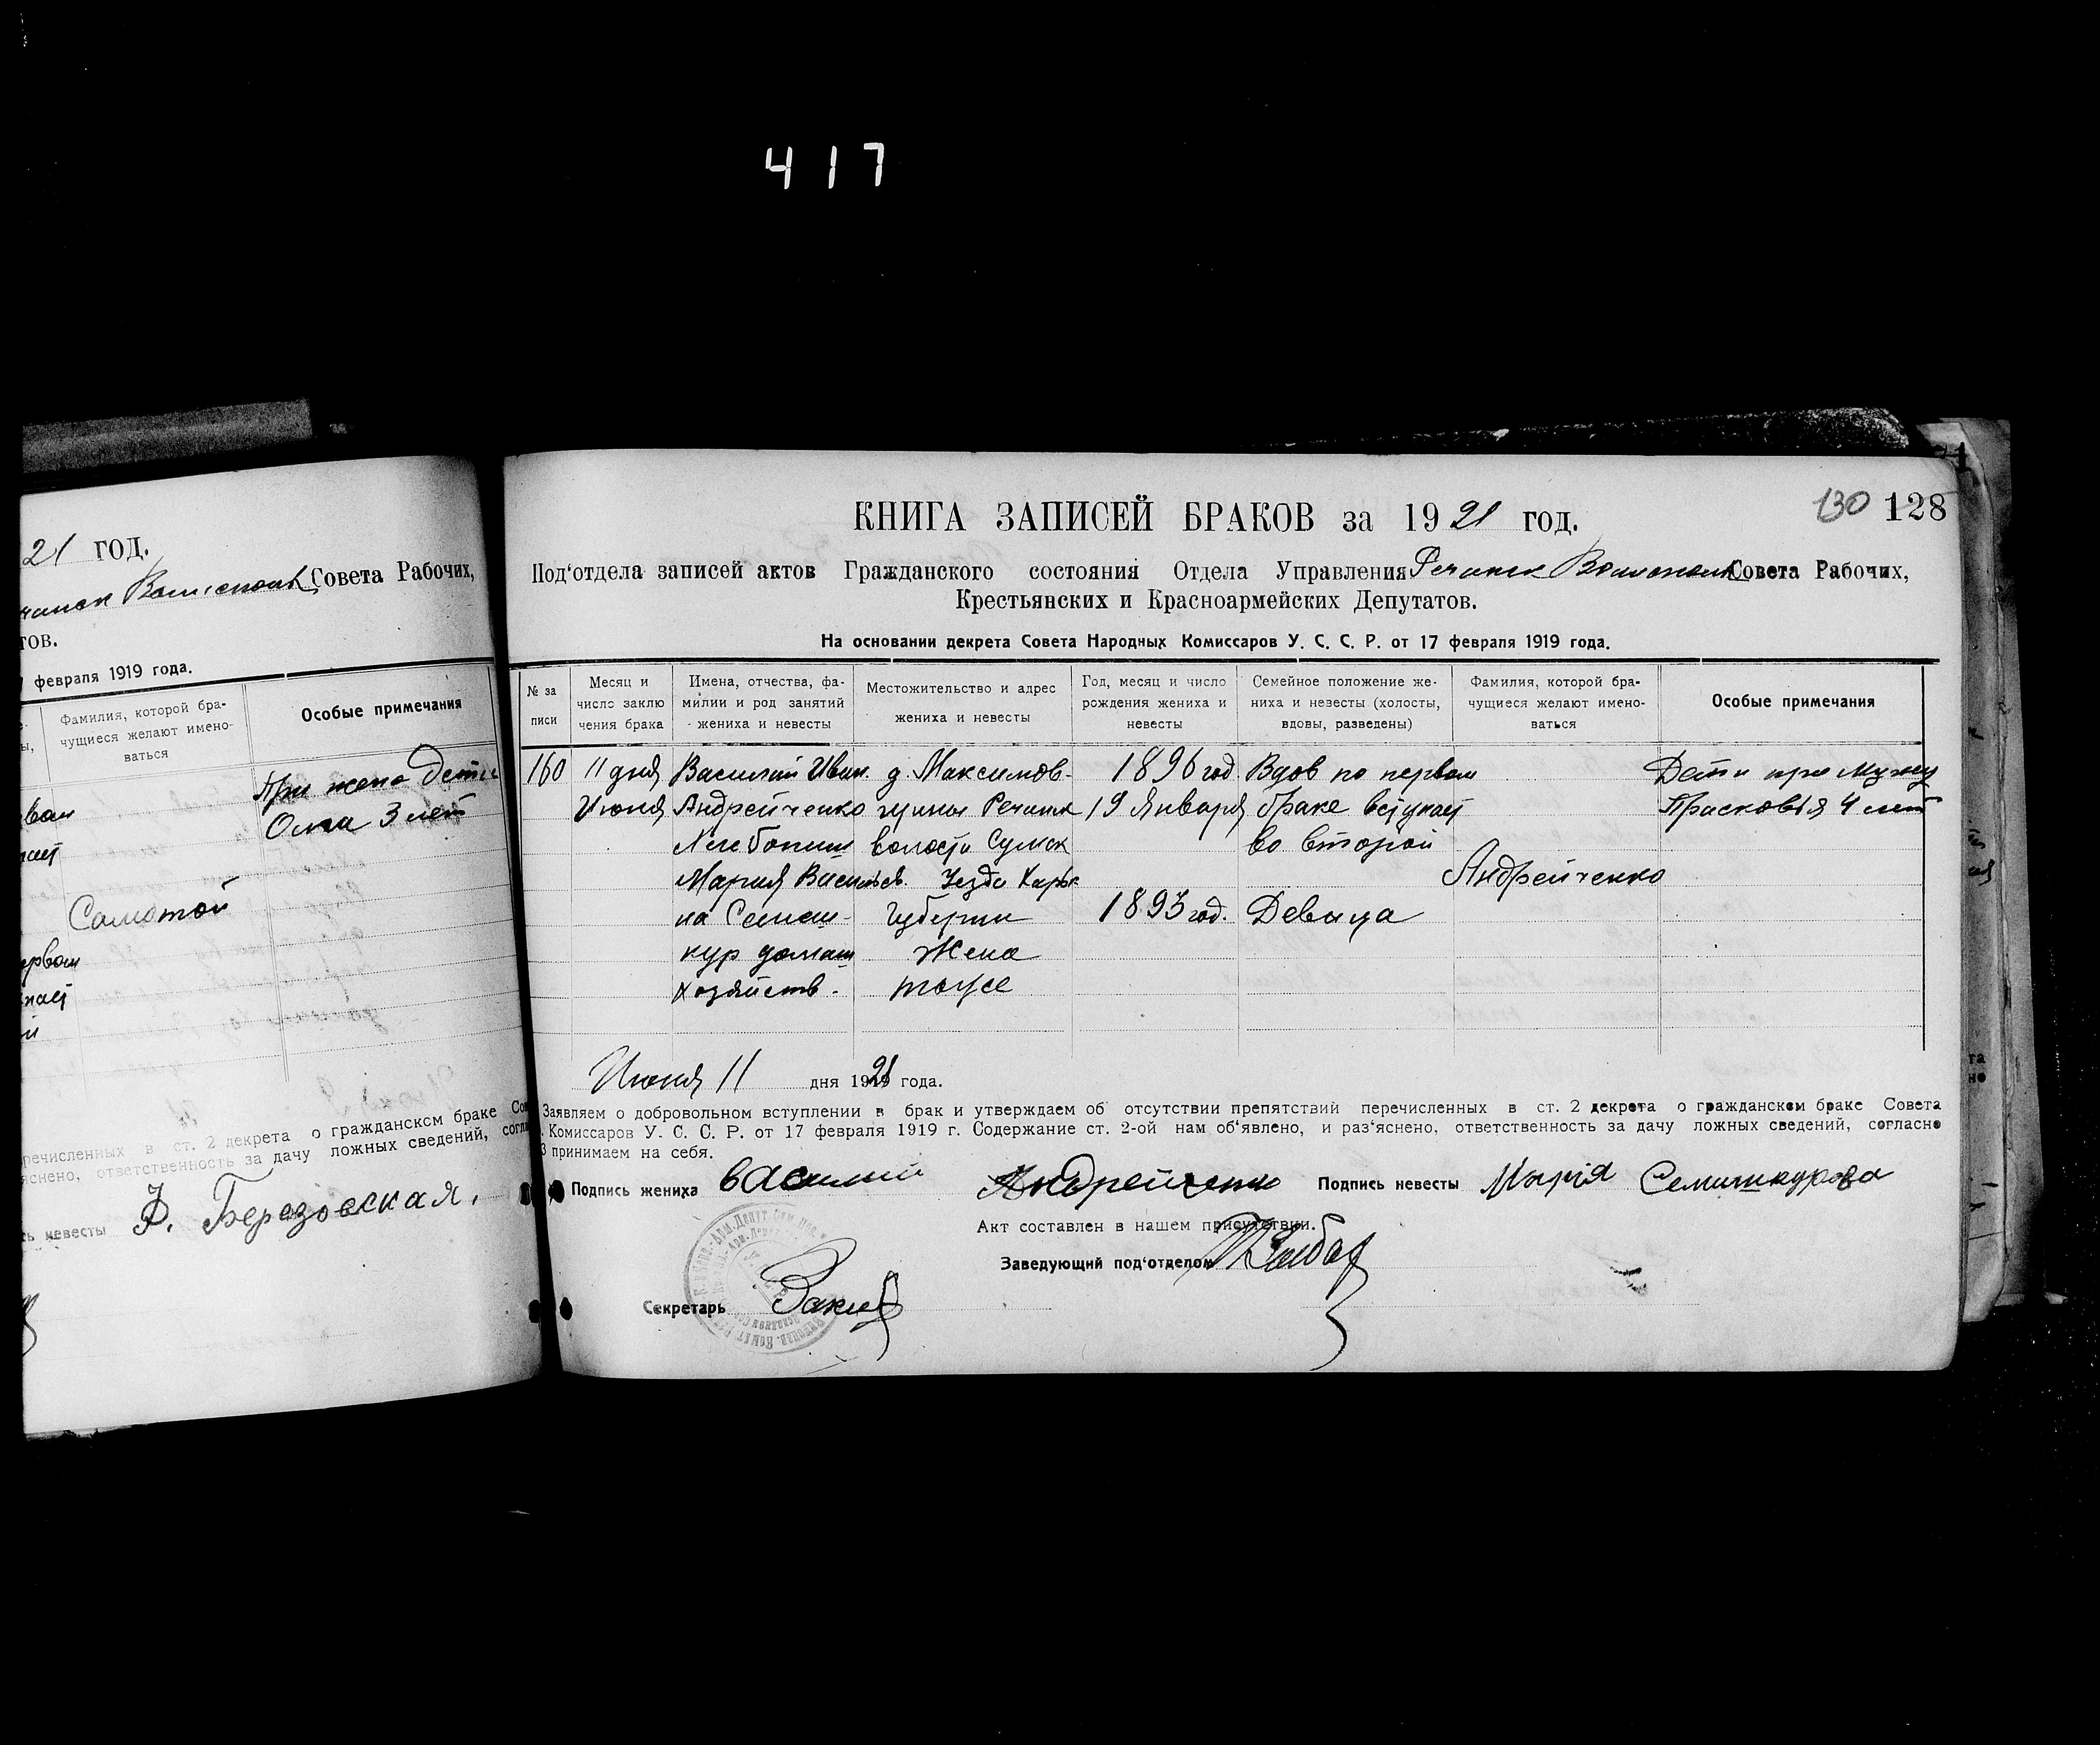 417
21 год.
Совета Рабочих,
тов.
февраля 1919 года.
Фамилия, которой бра-
чущиеся желают имено-
ваться
Особые примечания
При жене дети
Ольга 3 лет
Самотой
речисленных в ст. 2 декрета о гражданском браке Сов
яснено, ответственность за дачу ложных сведений, согла
ь невесты Ф. Березовская.
130 128
КНИГА ЗАПИСЕЙ БРАКОВ за 1921 год.
Под'отдела записей актов Гражданского состояния Отдела Управления Речанск Совета Рабочих,
Крестьянских и Красноармейских Депутатов.
На основании декрета Совета Народных Комиссаров У. С. С. Р. от 17 февраля 1919 года.
№ за
писи
Месяц и
число заклю
чения брака
Имена, отчества, фа-
милии и род занятий
жениха и невесты
Местожительство и адрес
жениха и невесты
Год, месяц и число
рождения жениха и
невесты
Семейное положение же-
ниха и невесты (холосты,
вдовы, разведены)
Фамилия, которой бра-
чущиеся желают имено-
ваться
Особые примечания
160
11 дня
Июня
Василий Иван.
Андрейченко
Хлебопаш
Мария Васильев.
на Семеш-
кур домаш
хозяйств.
д. Максимов-
щина Речанск
волости Сумск
Уезда Харьк
Губернии
Жена
тоже
1896 год
19 Января
1893 год.
Вдов по первом
браке вступает
во второй
Девица
Андрейченко
Дети при мужу
Прасковья 4 лет
Июня 11 дня 1921 года.
Заявляем о добровольном вступлении в брак и утверждаем об отсутствии препятствий перечисленных в ст. 2 декрета о гражданском браке Совета
. Комиссаров У. С. С. Р. от 17 февраля 1919 г. Содержание ст. 2-ой нам об'явлено, и раз'яснено, ответственность за дачу ложных сведений, согласно
3 принимаем на себя.
Подпись жениха Василий Андрейченко Подпись невесты Марія Семишкурова
Акт составлен в нашем присутствии.
Заведующий под'отделом
Секретарь